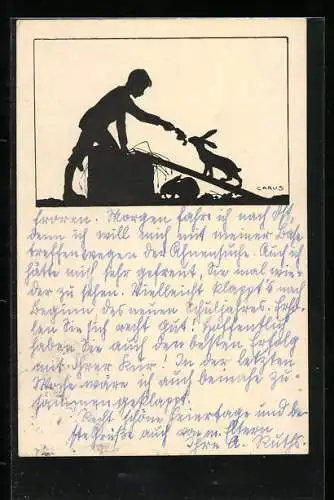 CARUS
froren. Morgen fahre ich nach
denn ich will mich mit meiner Base
treffen wegen der Ahnensuche. Auch ich
hätte mich sehr gefreut, Sie mal wie-
der zu sehen. Vielleicht klappt's nach
Beginn des neuen Schuljahres. Erho-
len Sie sich recht gut! Hoffentlich
haben Sie auch den besten Erfolg
mit Ihrer Kur! In der letzten
Woche wäre ich auch beinahe zu-
sammengeklappt.
Recht schöne Feiertage und be-
ste Grüße auch von m. Eltern
Ihre A. Ruths.